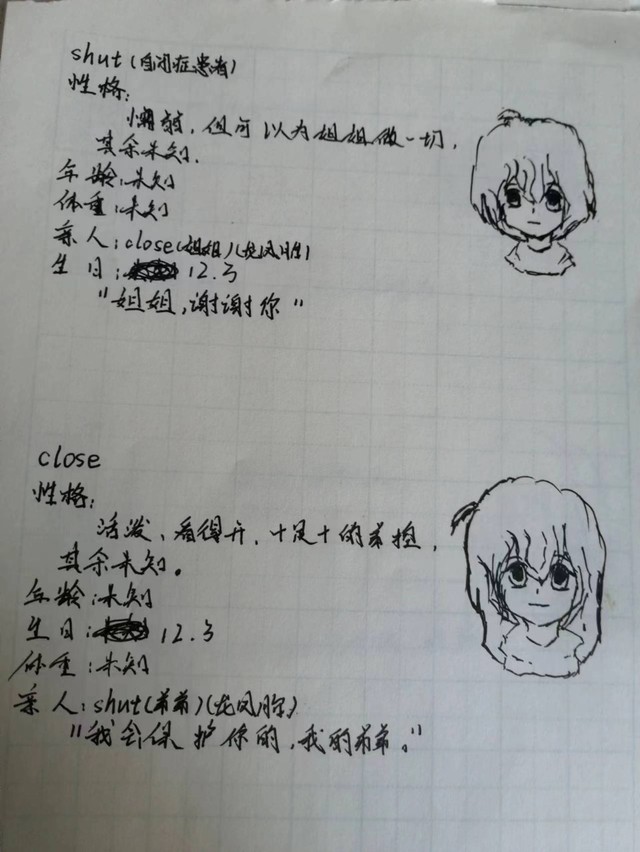 shut(自闭症患者)
性格:
懒弱,但可以为姐姐做一切,
其余未知.
年龄:未知
体重:未知
亲人:close(姐姐)(龙凤胎)
生日: 12.3
"姐姐,谢谢你"
close
性格:
活泼、看得开,十足十的弟控,
其余未知。
年龄:未知
生日: 12.3
体重:未知
亲人:shut(弟弟)(龙凤胎)
"我会保护你的,我的弟弟。"